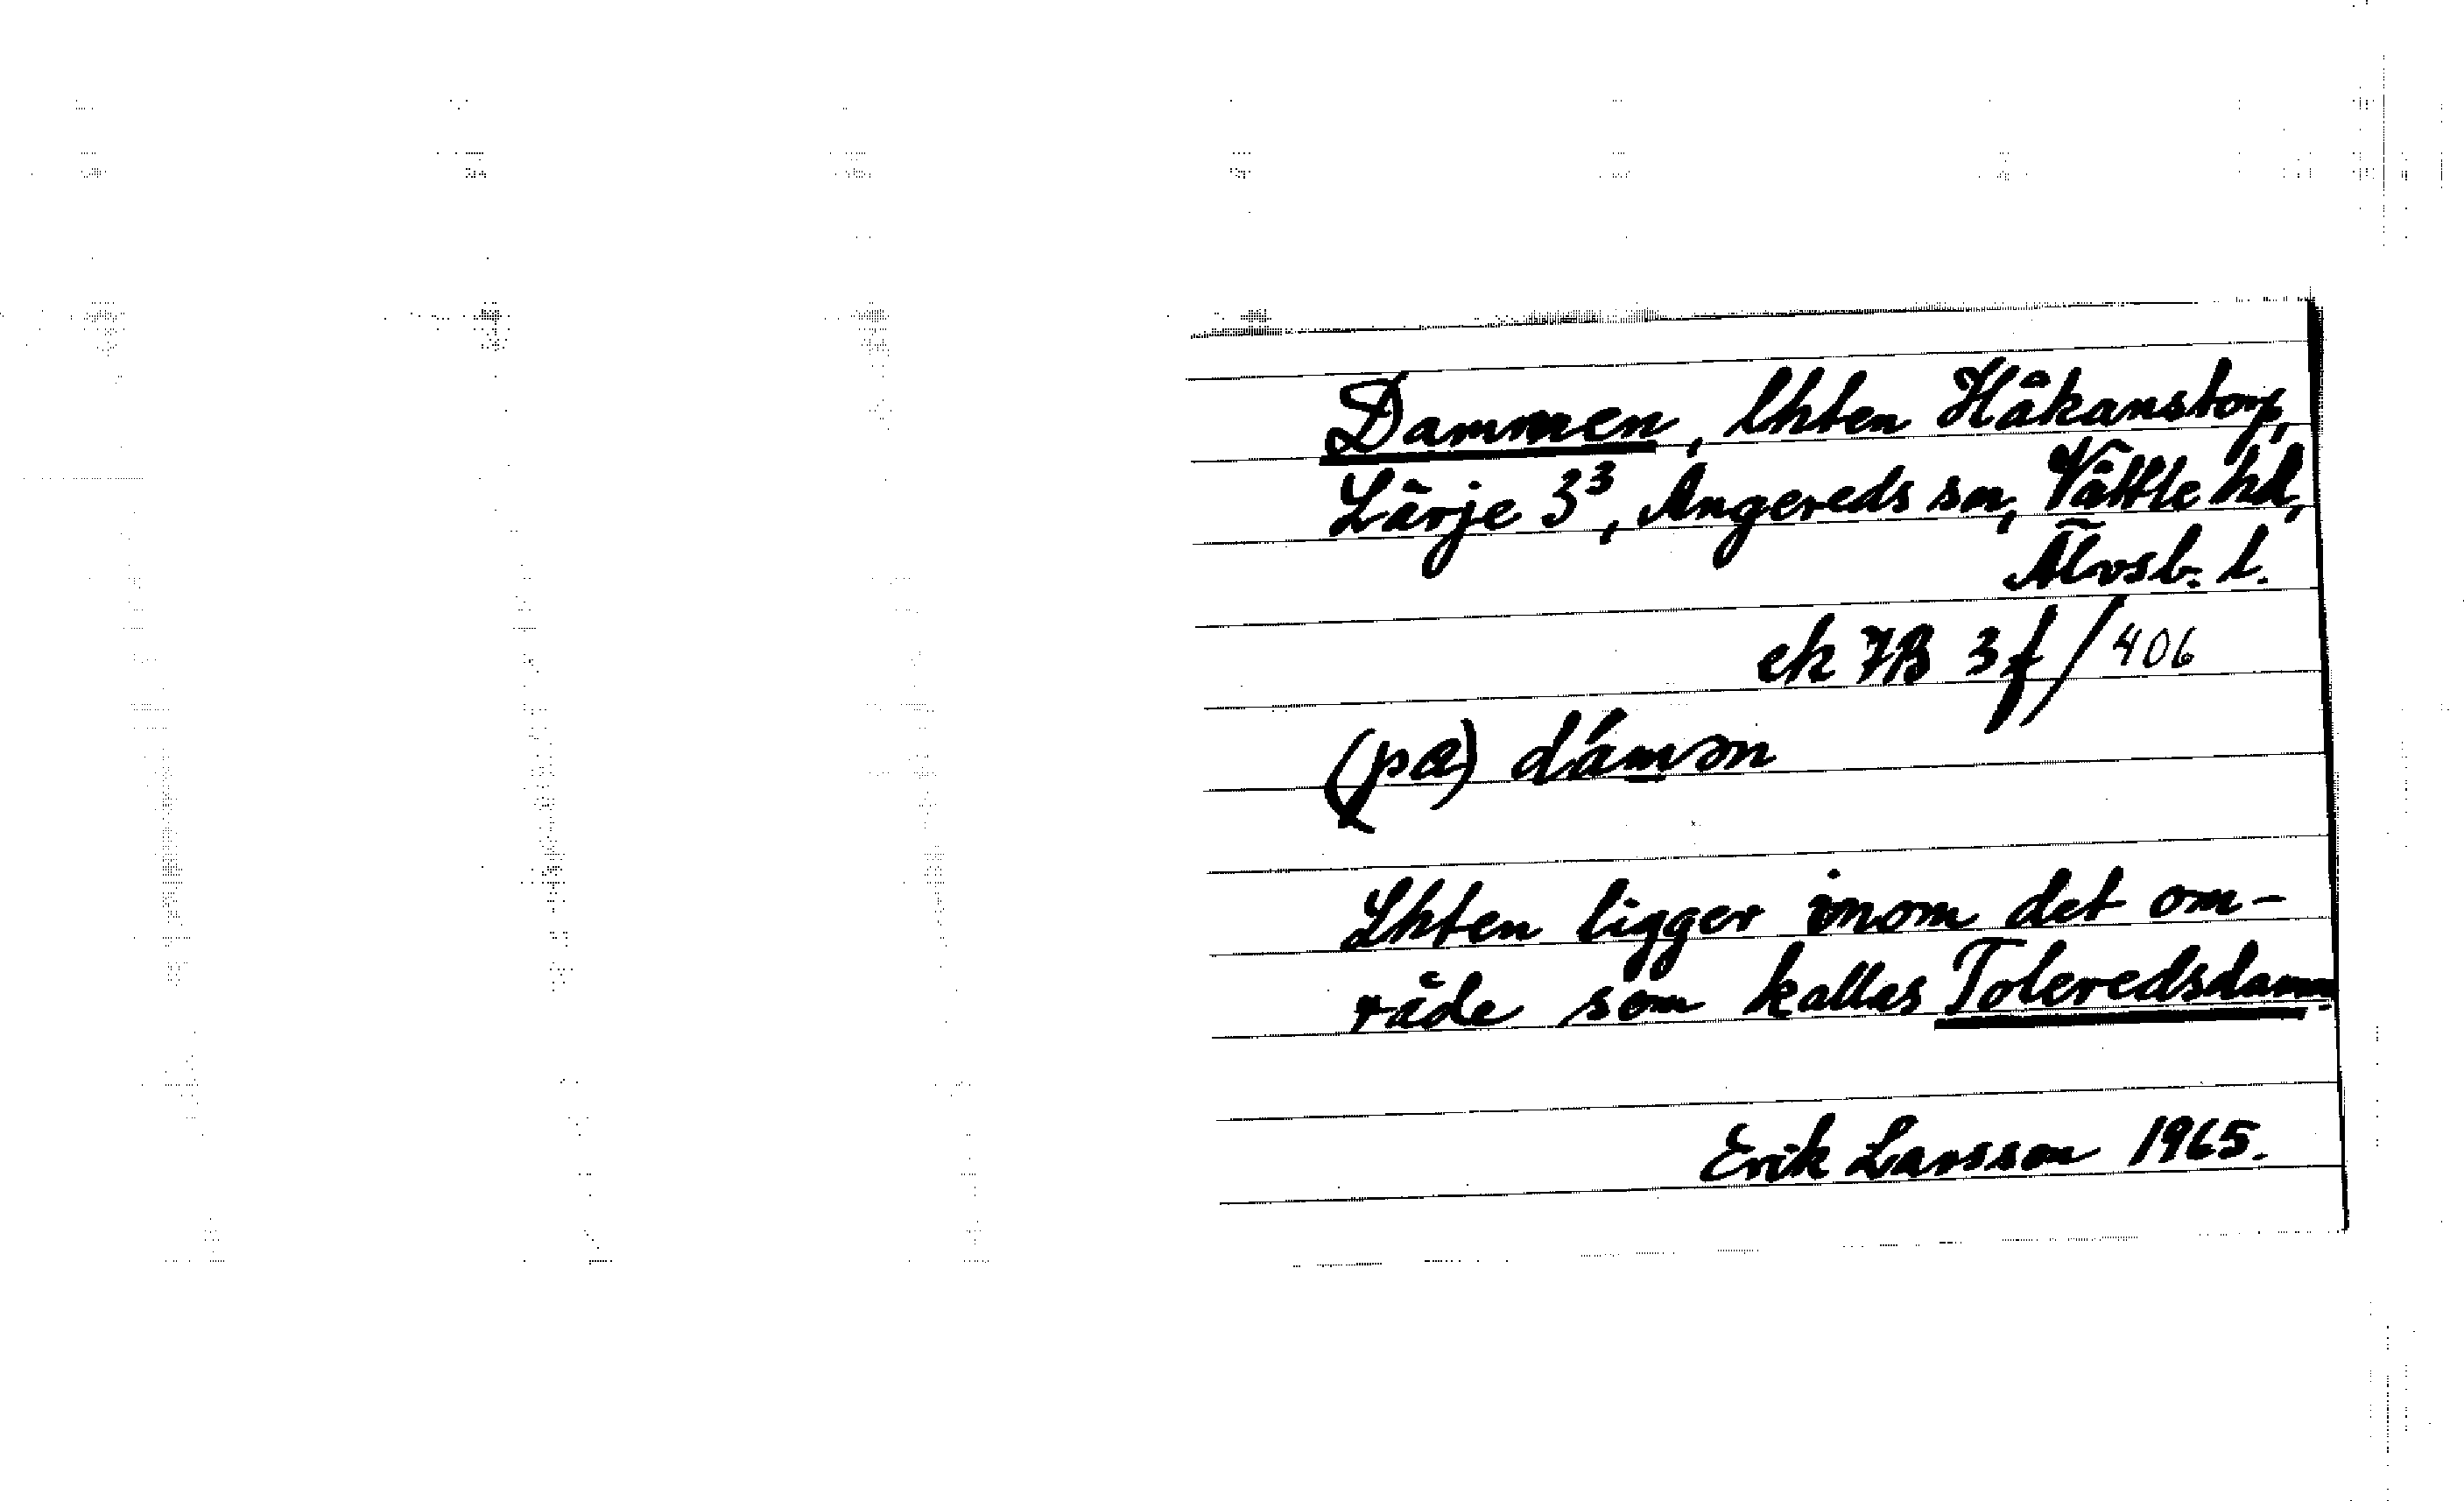 Dammen, lhten Håkanstorp,
Lärje 3³, Angereds sn, Vättle hd,
Älvsb. l.
ek 7B 3f/406
(pa) dámən
Lhten ligger inom det om-
råde som kallas Toleredsdamm
Erik Larsson 1965.